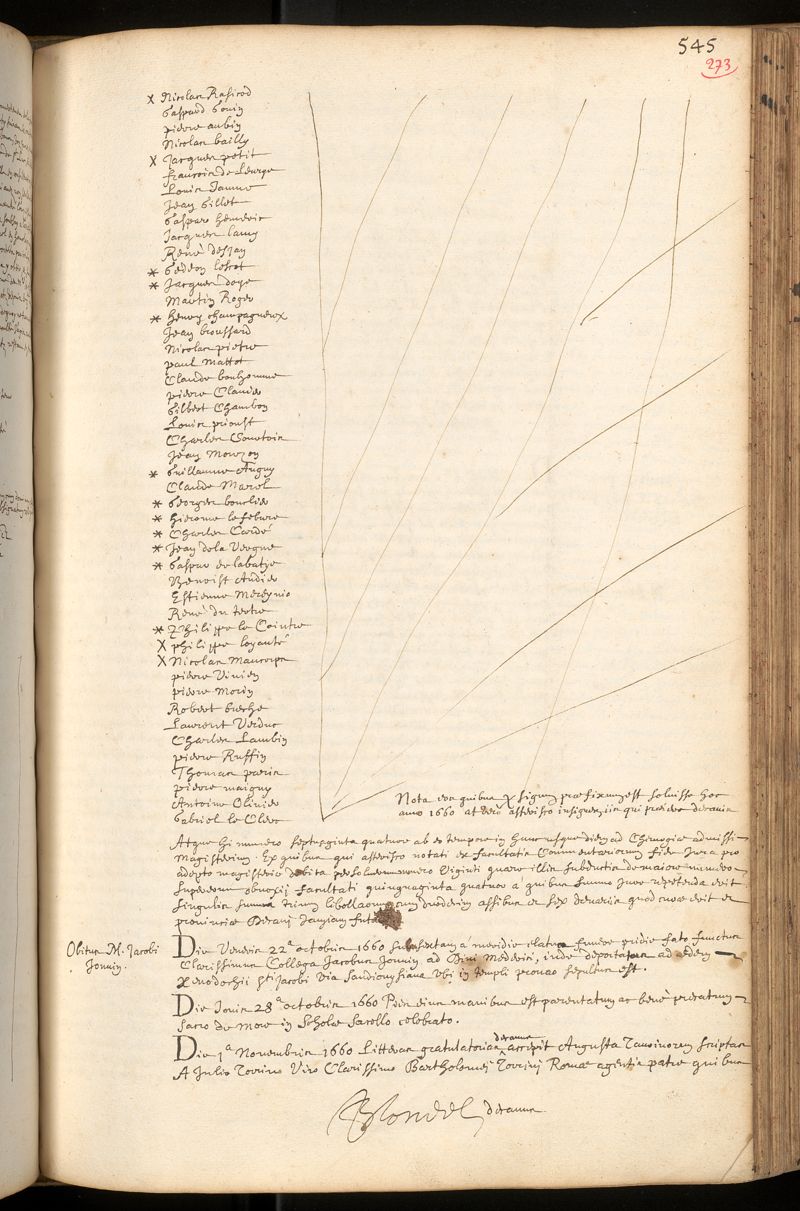 545
273
x Nicolas Rasicod
Gaspard Gouin
pierre aubin
Nicolas bailly
X Jacques petit
francois de Leurye
Louis Jamme
Jean Gillet
Gaspard Hemeric
Jacques lamy
René desjan
* Gedeon lescot
* Jacques doye
Martin Roger
* henry champagneux
Jean broussard
Nicolas pietre
paul Mattot
Claude bonhomme
pierre Claude
Gilbert Chambon
Louis prioust
Charles Courtois
Jean Monzon
* Guillaume Augny
Claude Marol
* Georges bourlier
* hierome le febure
* Charles Cordé
* Jean dela Vergne
* Gaspar delabatye
Benoist Audier
Estienne Mereynio
René du tertre
* Philippe le Cointre
X philippe loyauté
X Nicolas Maucorps
pierre Vivien
pierre Morin
Robert breche
Laurent Verduc
Charles Lambin
pierre Ruffin
Thomas paris
pierre maigny
Antoine Olivier
Gabriel le Clerc
Nota eos quibus x signum praefixum est soluisse hoc
anno 1660 at vero asterisco insignes iis qui praedec decanis
Atque hi numero septuaginta quatuor ab eo tempore in hunc usque diem ad Chirurgiae admissi
Magisterium. Ex quibus qui asterisco notati ex facultatis Commentariorum fide Jura pro
adepto magisterio debita persoluerunt numero viginti quare illis subductis de maiore numero
supersunt obnoxii facultati quinquaginta quatuor a quibus summo Jure repetenda erit
singulis summa trium libellarum cum duodecim assibus et sex denariis quod curae erit et
provinciae Decani Jamjam futuri
Obitus M. Jacobi
Jouvin.
Die Veneris 22ª octobris 1660 sub sextam a meridie elatus funere pridie fato functus
Clarissimus Collega Jacobus Jouvin ad Divi Mederici, inde deportatus ad aedem
Xenodochii Sti Jacobi via Sandionysiana ubi in templi pronao sepultus est.
Die Jovis 28ª octobris 1660 Piis eius manibus est parentatum ac bene precatum
sacro de More in Scholae sacello celebrato.
Die 1ª Novembris 1660 Litteras gratulatorias decanus accepit Augusta Taurinorum scriptas
A Julio Torrino Viro Clarissimo Bartholomei Torrini Romae agentis patre quibus
Blondel decanus